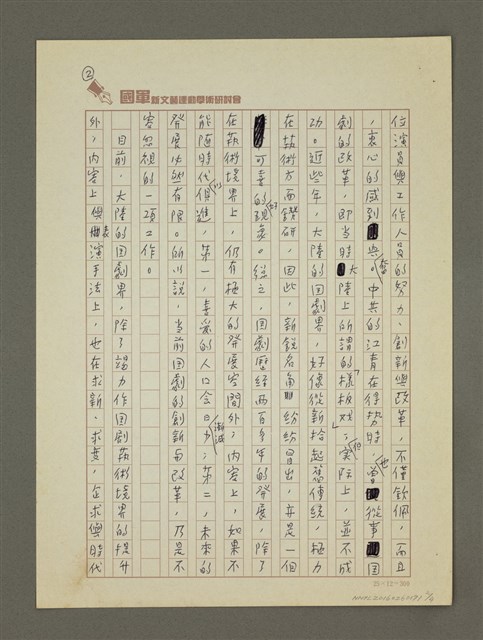 ②
國軍新文藝運動學術研討會
位演員與工作人員的努力、創新與改革,不僅欽佩,而且
,衷心的感到興奮。中共的江青在得勢時,也曾從事國
劇的改革,即當時大陸上所謂的「樣板戏」;但實际上,並不成
功。近些年,大陸的国劇界,好像從新拾起舊傳統,極力
在執術方面鑽研,因此,新銳名角,紛紛冒出,亦是一個
可喜的好現象。總之,国劇歷經两百多年的發展,除了
在執術境界上,仍有極大的發展空間外;内容上,如果不
能随時代以俱進,第一,喜爱的人口会日漸減力;第二,未來的
發展必然有限。所以說,当前国劇的創新与改革,乃是不
容忽視的一項工作。
目前,大陸的国劇界,除了竭力作国劇執術境界的提升
外,内容上與表演手法上,也在求新、求变,企求與時代
25×12=300